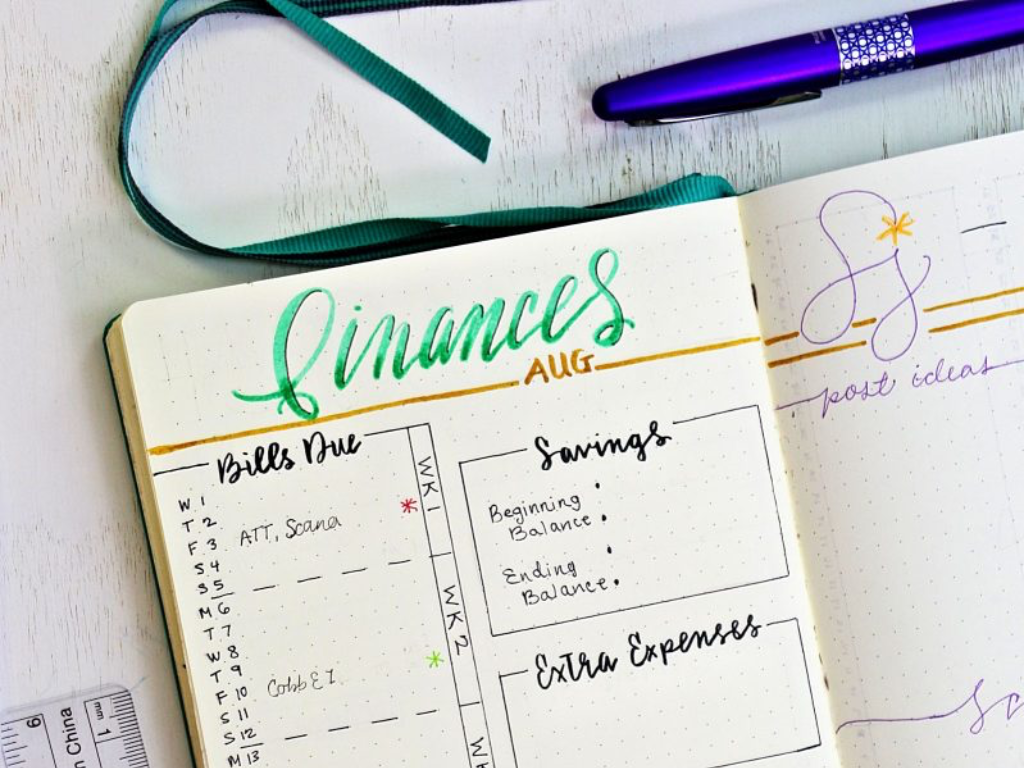 Finances
AUG
Bills Due
W. 1
T. 2
F. 3 ATT, Scana
S 4
S 5
M 6
T 7
W 8
T 9
F 10 Cobb EI
S 11
S 12
M 13
WK 1
WK 2
Savings
Beginning
Balance
Ending
Balance
Extra Expenses
post ideas
6
n China
mm 1